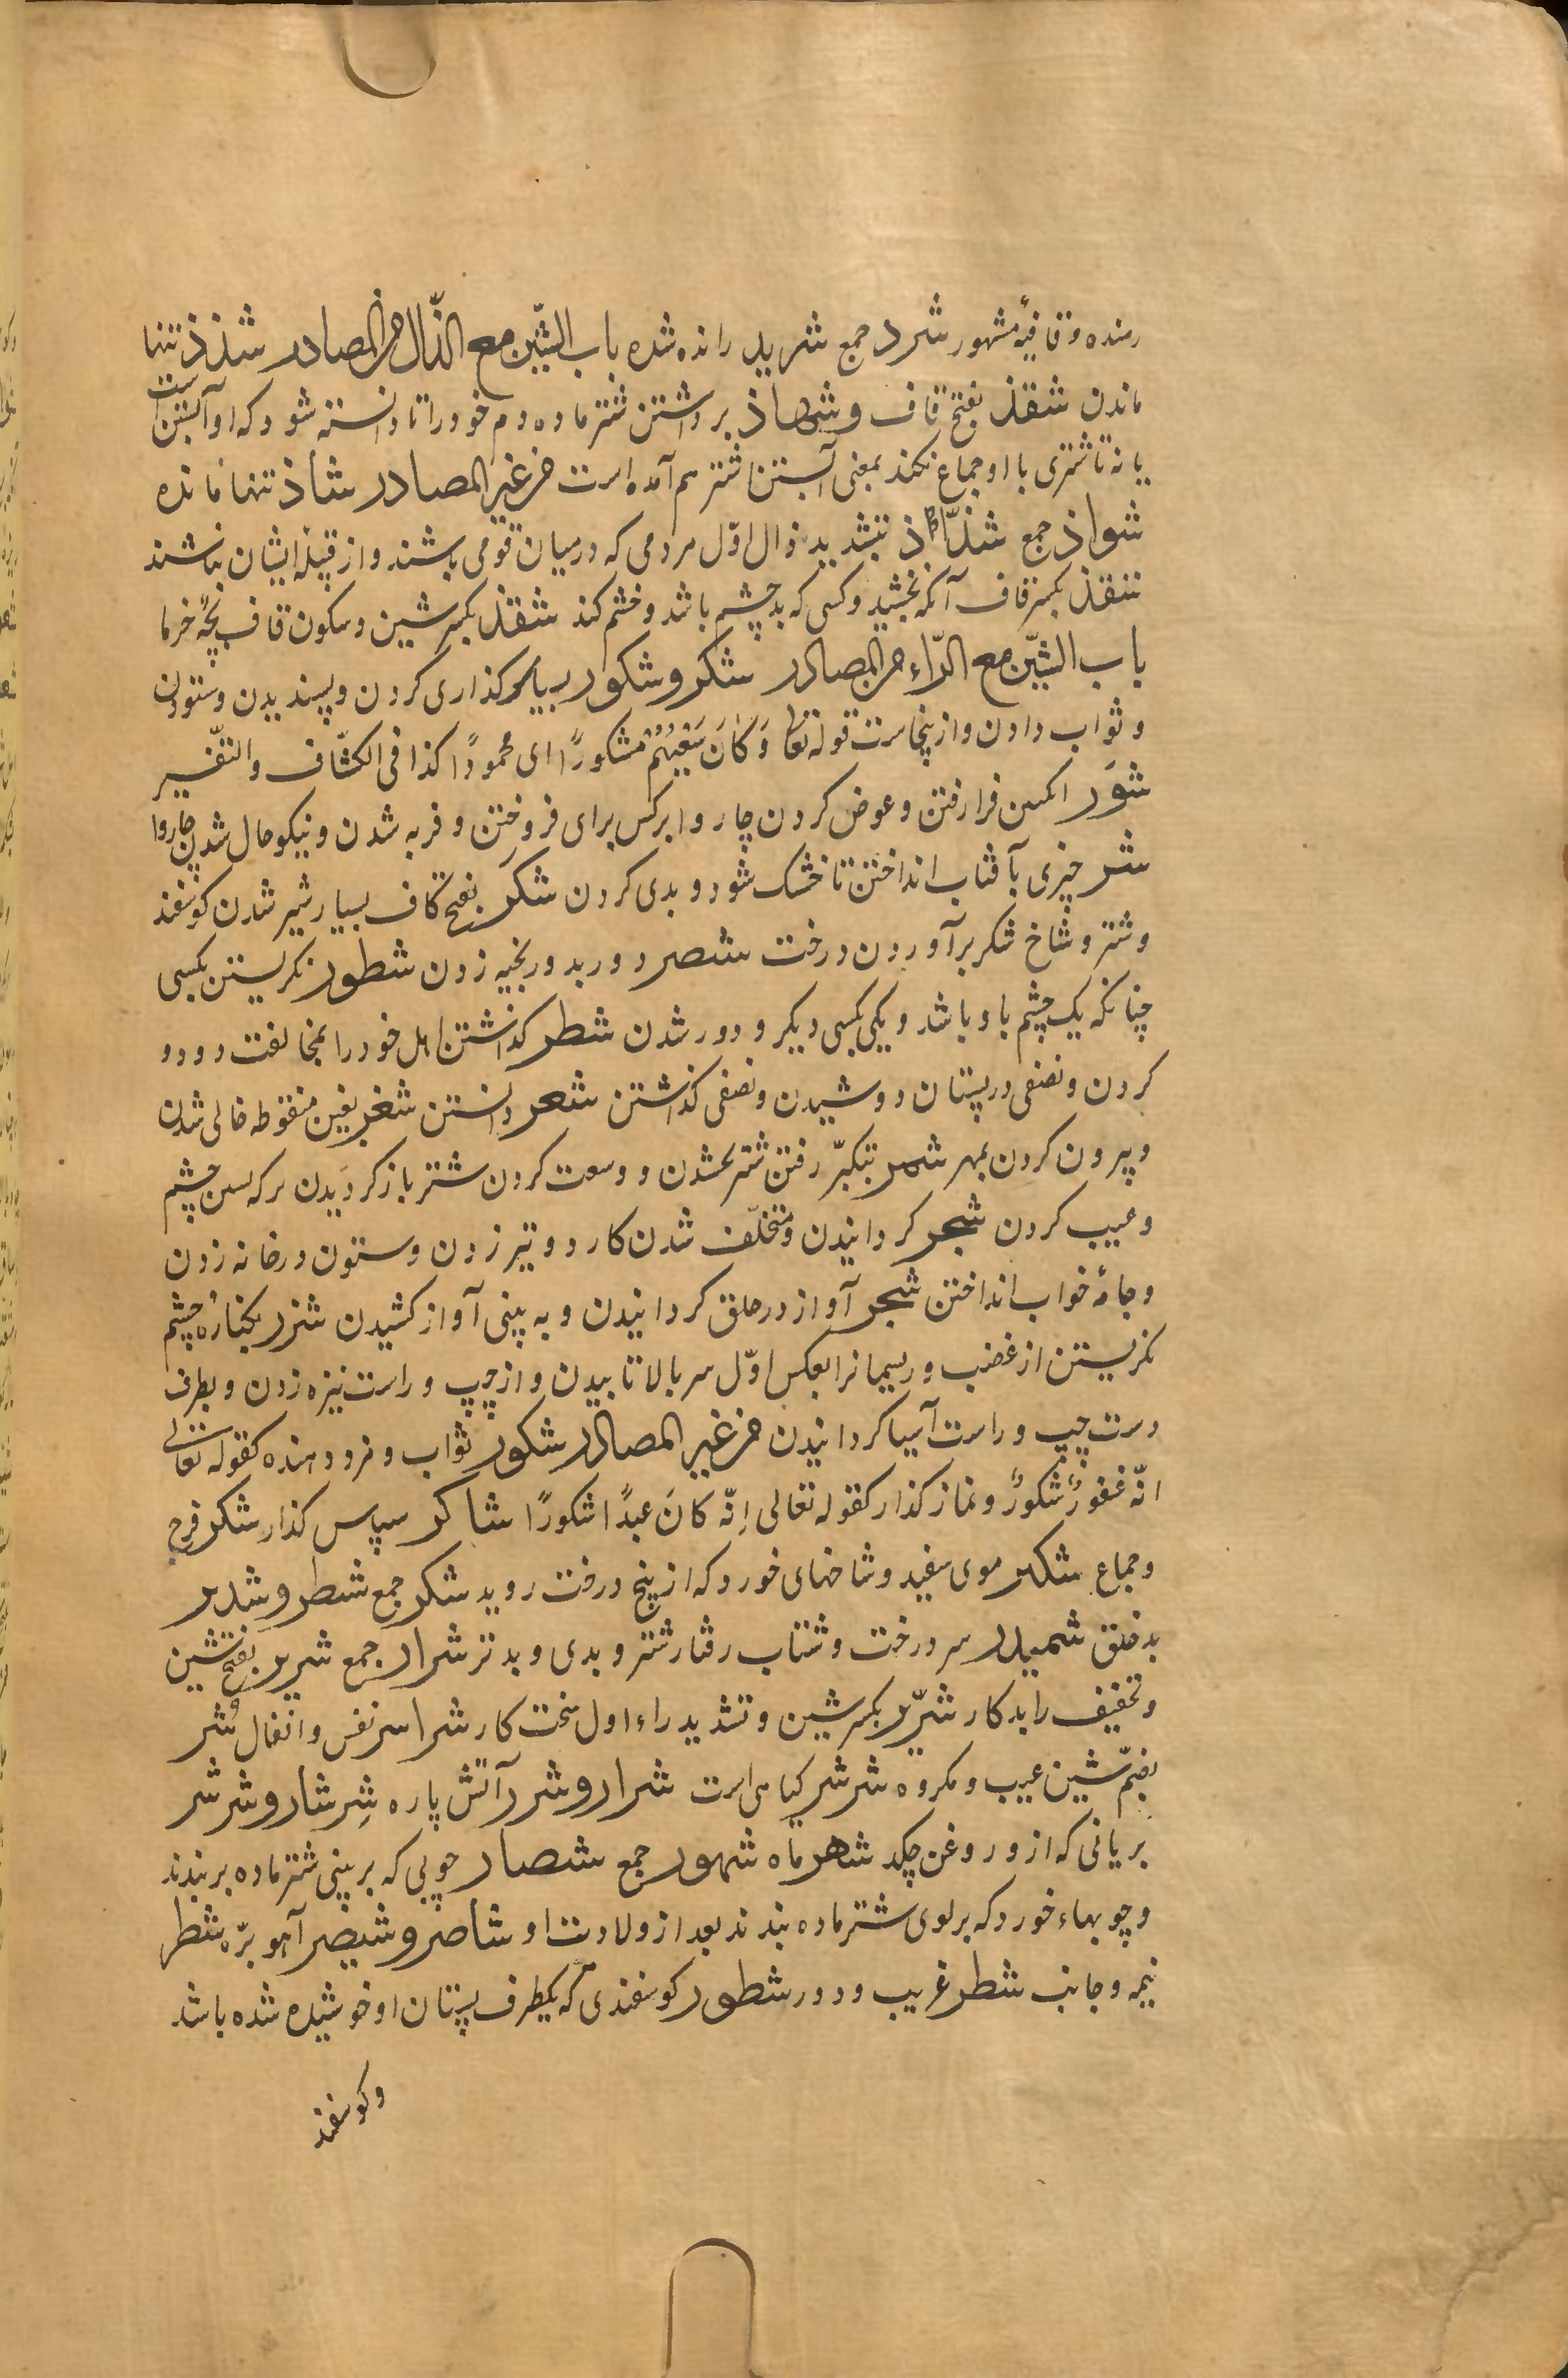 رمنده و قافیهٔ مشهور شرد جمع شرید رانده شده باب الشّین مع الذّال من المصادر شذذ تنها
ماندن شقذ بفتح قاف و شماذ برداشتن شتر ماده دم خود را تا دانسته شود که او آبستن است
یا نه تا شتری با او جماع نکند بمعنی آبستن شتر هم آمده است من غیر المصادر شاذ تنها مانده
شواذ جمع شذّاذ بتشدید ذال اوّل مردمی که درمیان قومی باشند و از قبیلهٔ ایشان نباشند
شقذ بکسر قاف آنکه نخسپد و کسی که بد چشم باشد و خشم کند شقذ بکسر شین و سکون قاف بچهٔ خرما
باب الشّین مع الرّاء من المصادر شکر و شکور سپاس کذاری کردن و پسندیدن و ستودن
و ثواب دادن و ازینجاست قوله تعا وَکَانَ سَعْیُهُمْ مشکورًا ای محمودًا کذا فی الکشّاف و التفّسیر
شوَر انکبین فرارفتن و عوض کردن چاروا بر کس برای فروختن و فربه شدن و نیکو حال شدن چاروا
شر چیزی بآفتاب انداختن تا خشک شود و بدی کردن شکَر بفتح کاف بسیار شیر شدن کوسفند
و شتر و شاخ شکر برآوردن درخت شصر دور بدور بخیه زدن شطور نکریستن بکسی
چنانکه یک چشم باو باشد و یکی بکسی دیکر و دور شدن شطر کذاشتن اهل خود را بمخالفت و دو دو
کردن و نصفی در پستان دوشیدن و نصفی کذاشتن شعر دانستن شغر بغین منقوطه خالی شدن
و بیرون کردن بمهر شمر بتکبّر رفتن شتر کشدن و وسعت کردن شتر باز کردیدن چشم
و عیب کردن شجر کردانیدن و متخلّف شدن کار و دو تیر زدن و ستون در خانه زدن
و جامهٔ خواب انداختن شخر آواز در حلق کردانیدن و به بینی آواز کشیدن شزر بکنارهٔ چشم
نکریستن از غضب و ریسمانرا بعکس اوّل سر بالا تابیدن و از چپ و راست نیزه زدن و بطرف
دست چپ و راست آسیا کردانیدن من غیر المصادر شکور ثواب و مزد دهنده کقوله تعالی
انّه غفورٌ شکورٌ و نماز کذار کقوله تعالی اِنّه کانَ عبدًا شکورًا شاکر سپاس کذار شکر فرج
و جماع شکیر موی سفید و شاخهای خورد که از بیخ درخت روید شکر جمع شطر و شریر
بدخلق شمیدر سر درخت و شتاب رفتار شتر و بدی و بدتر شرار جمع شریر بفتح شین
و تخفیف را بدکار شرّیر بکسر شین و تشدید راء اول سخت کار شراسر نفس و اثقال شُر
بضمّ شین عیب و مکروه شرشر کیاهی است شرار و شرر آتش پاره شِرشار و شرشر
بریانی که ازو روغن چکد شهر ماه شهور جمع شصار چوبی که بر بینی شتر ماده بربندند
و چوبهاء خورد که بر لوی شتر ماده بندند بعد از ولادت او شاصر و شیضر آهو برّه شطر
نیمه و جانب شطر غریب و دور شطور کوسفندی که یکطرف پستان او خوشیده شده باشد
و کوسفند